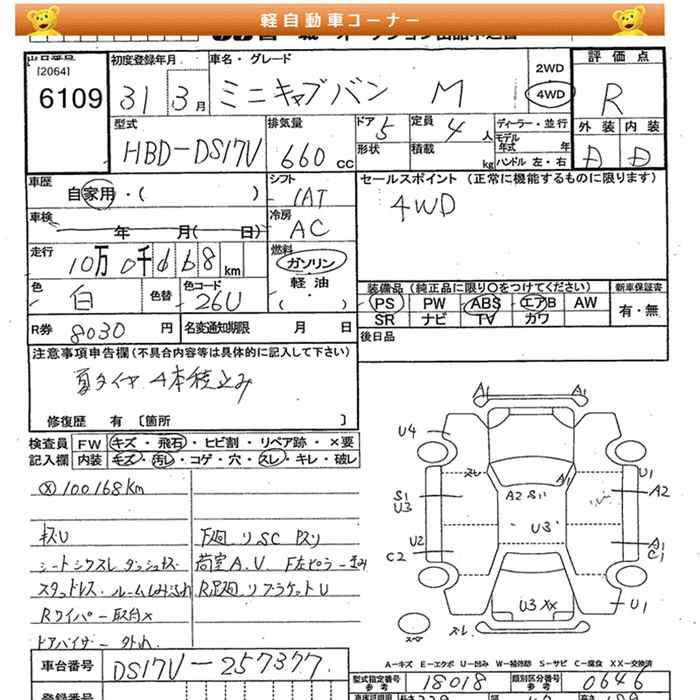 軽自動車コーナー
[2064]
6109
初度登録年月
31 3月
車名・グレード
ミニキャブバン M
2WD
4WD
評価点
R
型式
HBD-DS17V
排気量
660 CC
ドア 5
定員 4 人
形状
積載 kg
ディーラー・並行
モデル年式 年
ハンドル 左・右
外装 内装
D D
車歴
自家用・( )
シフト
IAT
セールスポイント (正常に機能するものに限ります)
4WD
車検
年 月( 日)
冷房
AC
走行
10万0千168 km
燃料
ガソリン
軽油・( )
色
白
色替
色コード
26U
装備品 (純正品に限り○をつけてください)
PS PW ABS エアB AW
SR ナビ TV カワ
新車保証書
有・無
R券 8030 円
名変通知期限 月 日
後日品
注意事項申告欄 (不具合内容等は具体的に記入して下さい)
夏タイヤ 4本積込み
修復歴 有 [箇所 ]
検査員記入欄
FW キズ・飛石・ヒビ割・リペア跡・×要
内装 キズ・汚レ・コゲ・穴・スレ・キレ・破レ
ⓧ 100168Km
キズU
下廻リSC キズリ
荷室A.U.
シートシワスレ
スタッドレス・ルームしみ汚れ
R足廻リブラケットU
Rワイパー取付×
ドアバイザー外れ
A1 A1
U4
スレ
A1
U1
S1
U3
A2 S11
A2
U3
U2
C2
A1
C1
U3 XX
U1
スレ
A-キズ E-エクボ U-凹み W-補修跡 S-サビ C-腐食 XX-交換済
車台番号
DS17V-257377
型式指定番号
参考
18018
類別区分番号
参考
0646